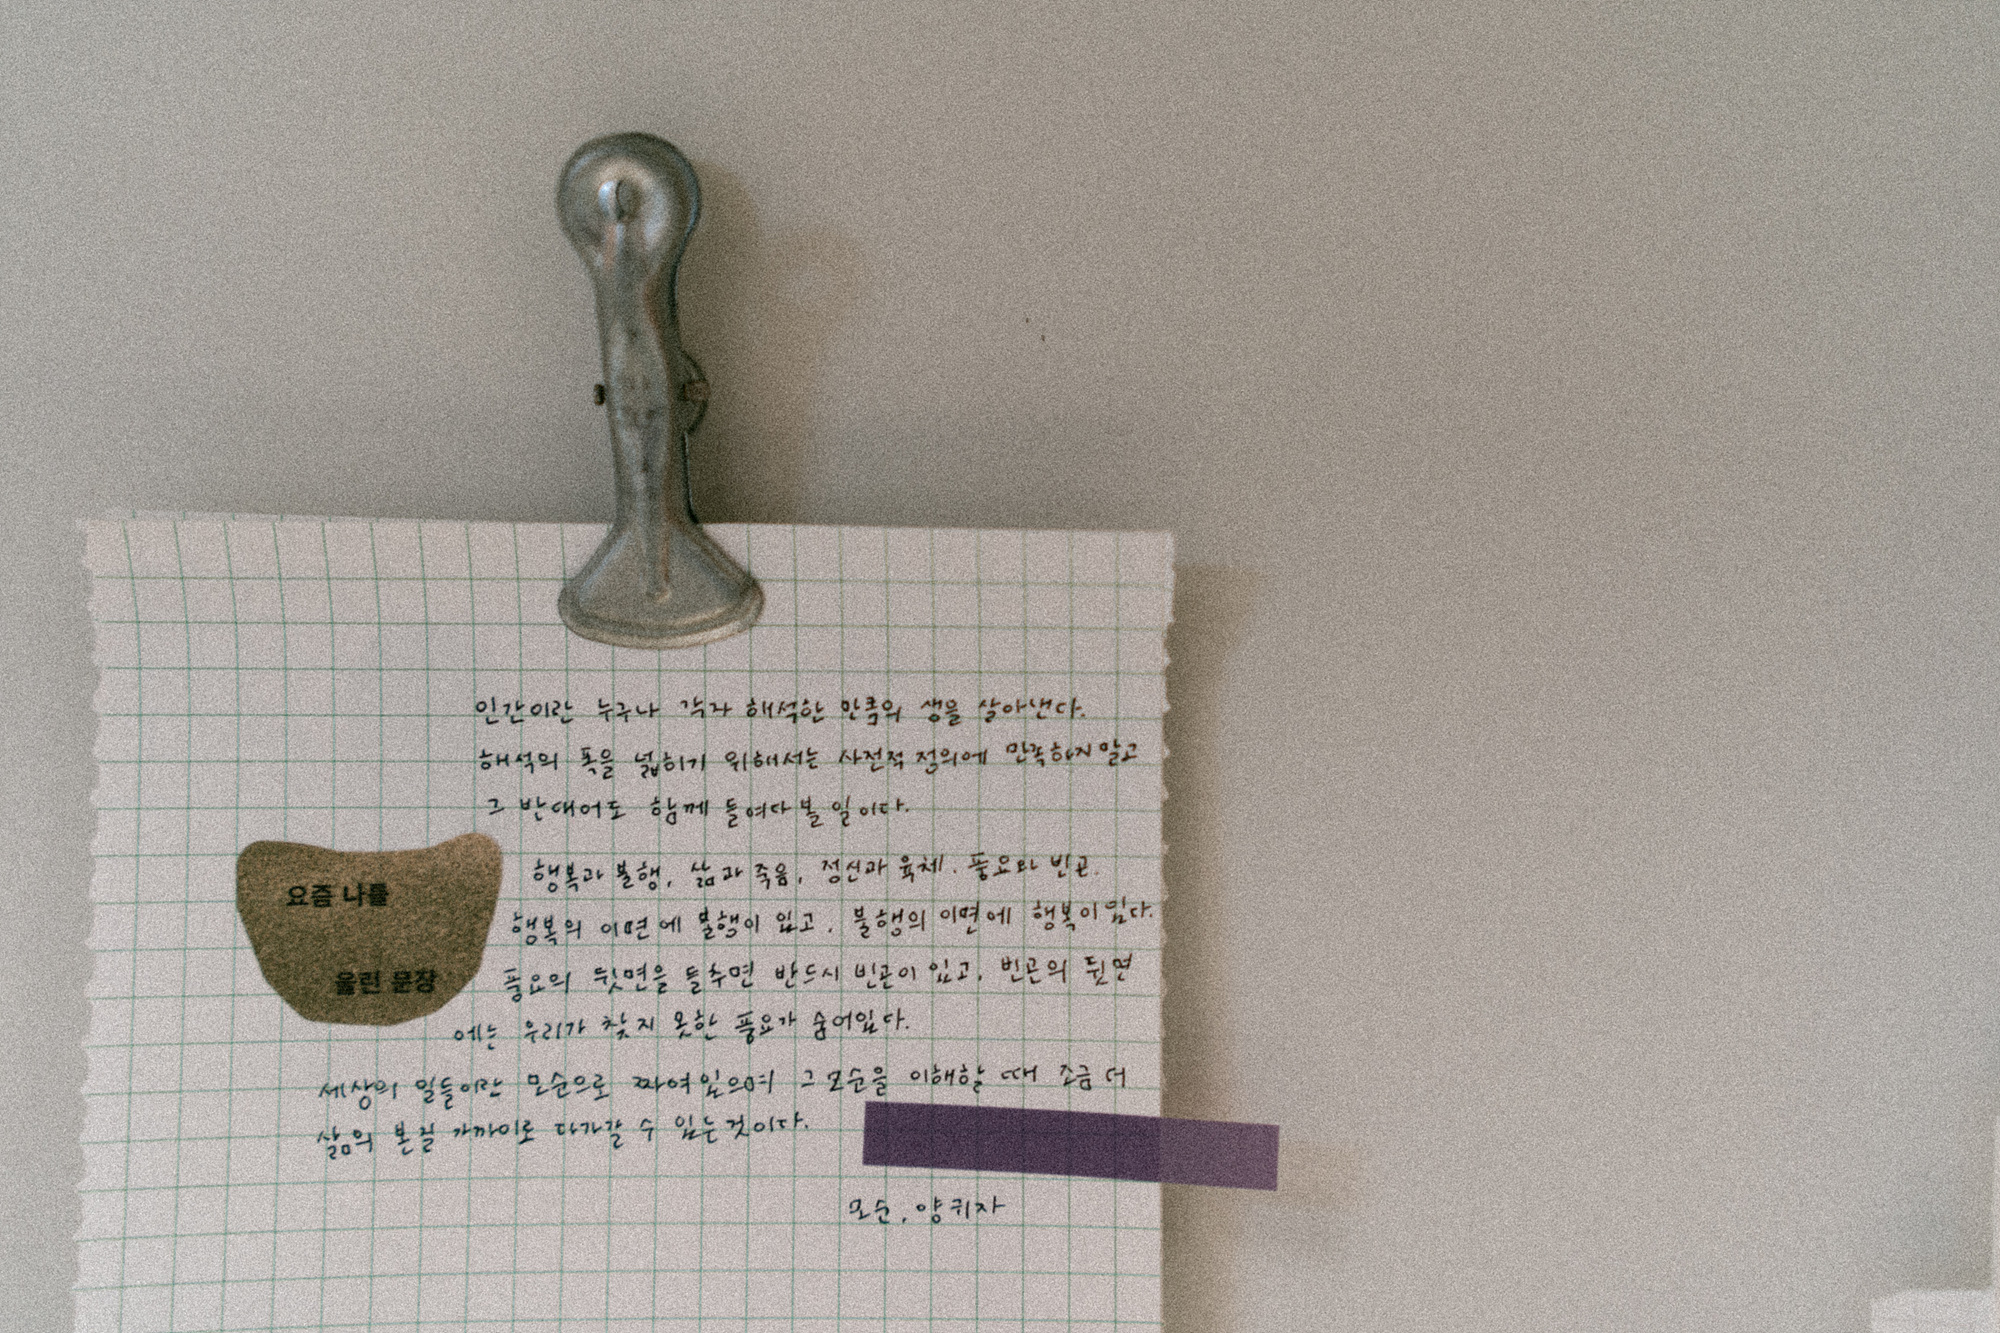 인간이란 누구나 각자 해석한 만큼의 생을 살아낸다.
해석의 폭을 넓히기 위해서는 사전적 정의에 만족하지 말고
그 반대어도 함께 들여다 볼 일이다.
행복과 불행, 삶과 죽음, 정신과 육체. 풍요와 빈곤.
행복의 이면에 불행이 있고, 불행의 이면에 행복이 있다.
풍요의 뒷면을 들추면 반드시 빈곤이 있고, 빈곤의 뒷면
에는 우리가 찾지 못한 풍요가 숨어있다.
세상의 일들이란 모순으로 짜여있으며 그 모순을 이해할 때 조금 더
삶의 본질 가까이로 다가갈 수 있는 것이다.
모순, 양귀자
요즘 나를
울린 문장